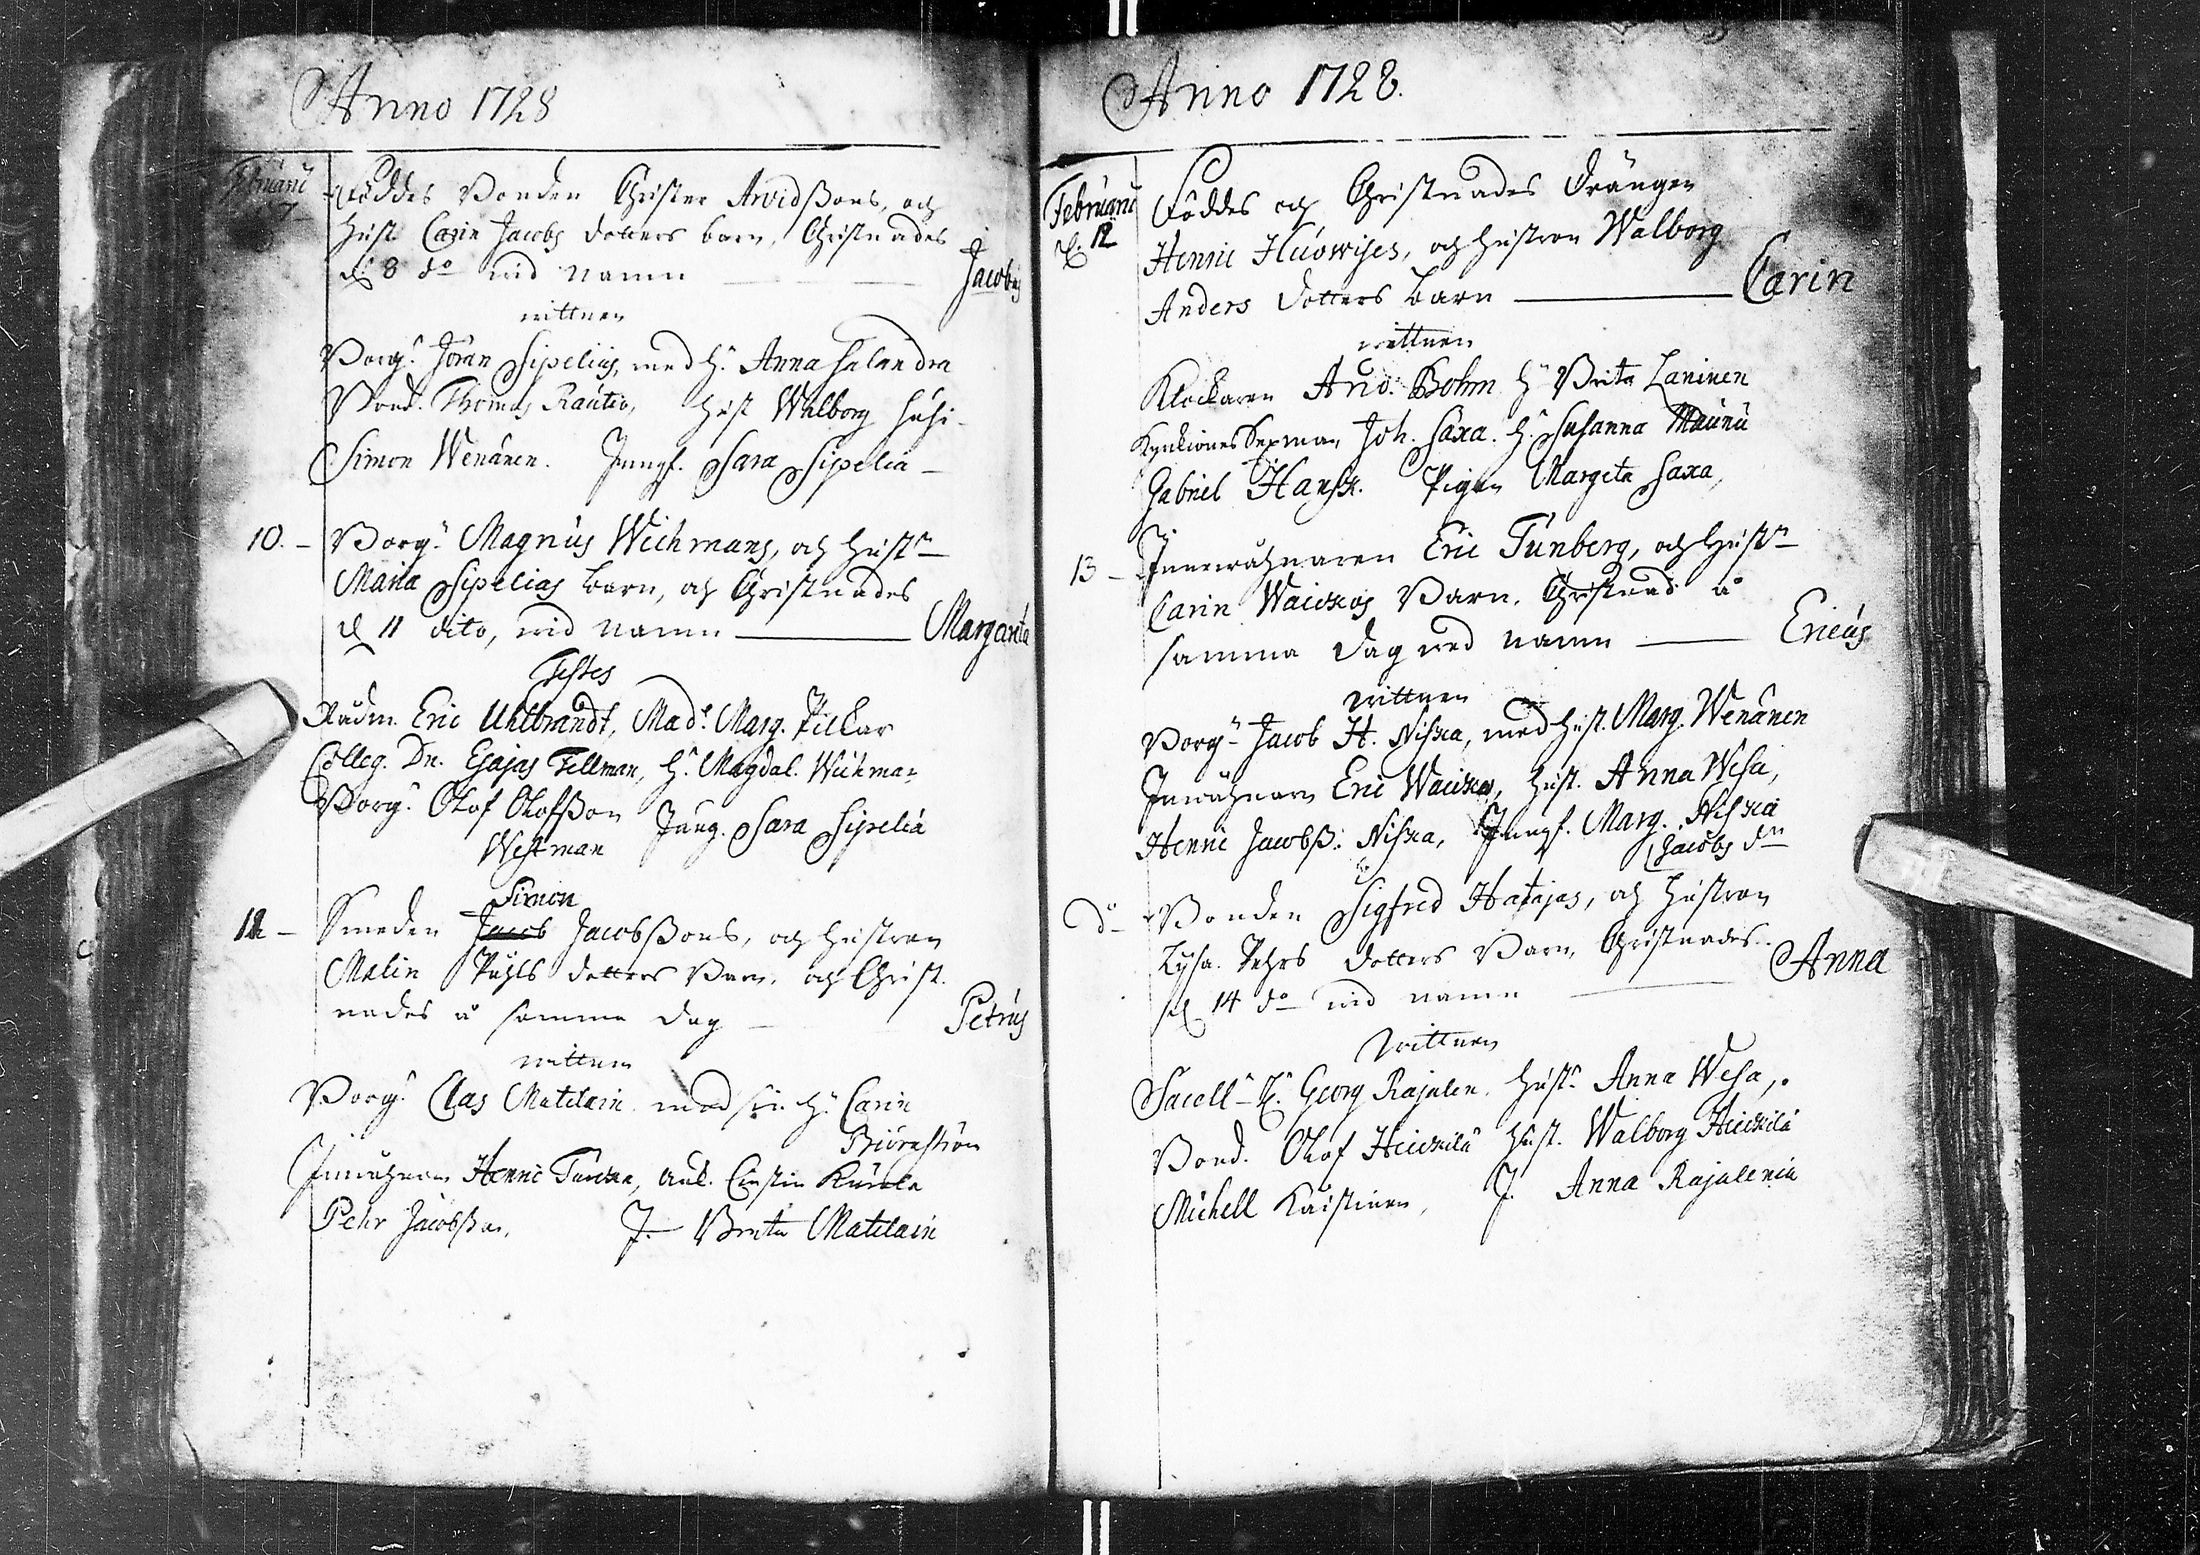 Anno 1728
Februarii
7
Föddes Bonden Christer Arvidßons, och
hust. Carin Jacobs dotters barn, Christnades
d. 8 do vid namn Jacobus
wittnen
Borg. Jöran Sipelius, med h. Anna Salandra
Bond. Thomas Rautio, hust Walborg Susi
Simon Wenänen. Jungf. Sara Sipelia
10. Borg. Magnus Wichmans, och hustr
Maria Sipelias barn, och Christnades
d 11 dito, vid namn Margareta
Testes
Rådm. Eric Uhlbrandt, Mad. Marg. Pictar
Colleg. Dn. Esajas Fellman, h. Magdal. Wichman
Borg. Olof Olofßon Jung. Sara Sipelia
Westman
Simon
12 Smeden Jacob Jacobßons, och hustron
Malin Påhls dotters Barn, och Christ
nades å samma dag Petrus
wittnen
Borg. Clas Matelain med sin h. Carin
Biörnström
Inwåhnaren Henric Turcka, Enk. Cirstin
Pehr Jacobßon, J. Brita Matelain
Anno 1728.
Februarii
d. 12
Föddes och Christnades Drängen
Henric Huowises, och hustron Walborg
Anders dotters barn Carin
wittnen
Klockaren And. Bohm h Brita Laninen
Sexman Joh. Saxa. h. Susanna Maunu
Gabriel Hansz. Pigan Margeta Saxa,
13 Innewåhnaren Eric Tunberg, och Hustr
Carin Waickos Barn, Christnad å
samma dag wed namn Ericus
wittnen
Borg. Jacob H. Niska, med hust. Marg. Wenänen
Inwåhnaren Eric Waicko, hust. Anna Wesa,
Henric Jacobß: Niska, Jungf. Marg. Niska
Jacobs dr
do Bonden Sigfred Hatajas, och hustron
Lysa Pehrs dotters Barn, Christnades
d 14 do vid namn Anna
wittnen
Sacell. H. Georg Rajalen. hust. Anna Wesa,
Bond. Olof Heickilä hust. Walborg Heickilä
Michell Kaistinen, J. Anna Rajalenia